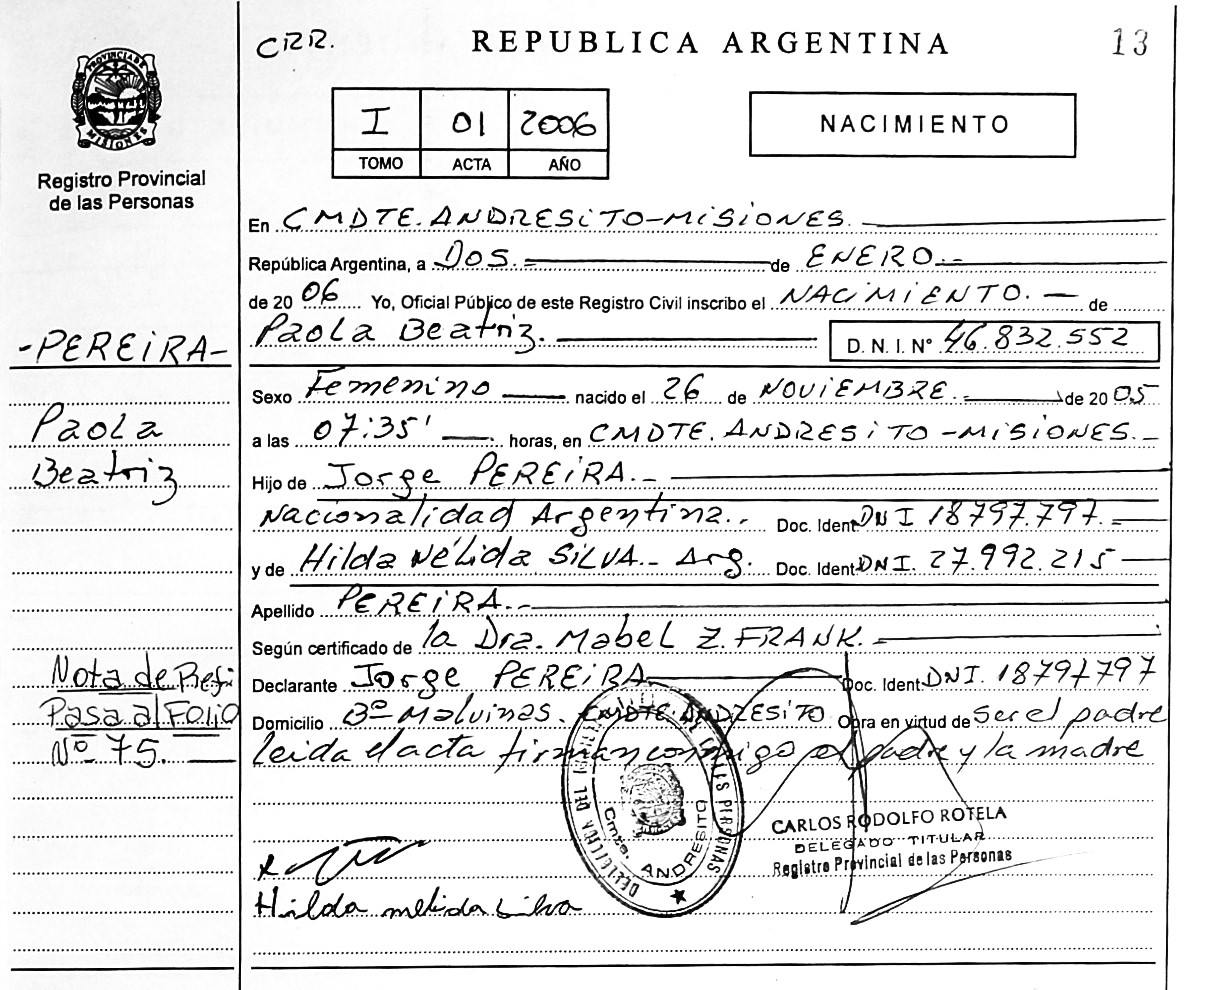 CRR.
REPUBLICA ARGENTINA
13
PROVINCIA DE
MISIONES
Registro Provincial
de las Personas
I 01 2006
TOMO ACTA AÑO
NACIMIENTO
En CMDTE. ANDRESITO-MISIONES.
República Argentina, a DOS. de ENERO.-
de 20 06 Yo, Oficial Público de este Registro Civil inscribo el NACIMIENTO. - de
Paola Beatriz. D. N. I. Nº 46.832.552
-PEREIRA-
Paola
Beatriz
Sexo Femenino nacido el 26 de NOVIEMBRE. de 20 05
a las 07:35' horas, en CMDTE. ANDRESITO -MISIONES.-
Hijo de Jorge PEREIRA.-
Nacionalidad Argentina.- Doc. Ident DNI 18797.797.-
y de Hilda Nélida SILVA.- Arg. Doc. Ident DNI. 27.992.215
Apellido PEREIRA.-
Según certificado de la Dra. Mabel Z. FRANK.-
Declarante Jorge PEREIRA Doc. Ident. DNI. 18797797
Domicilio Bº Malvinas. CMDTE. ANDRESITO Obra en virtud de ser el padre
leida el acta firman conmigo el padre y la madre
Nota de Refi
Pasa al Folio
Nº 75.
DELEGACION DEL REGISTRO DE LAS PERSONAS
Cmte. ANDRESITO
CARLOS RODOLFO ROTELA
DELEGADO TITULAR
Registro Provincial de las Personas
Hilda nelida Silva